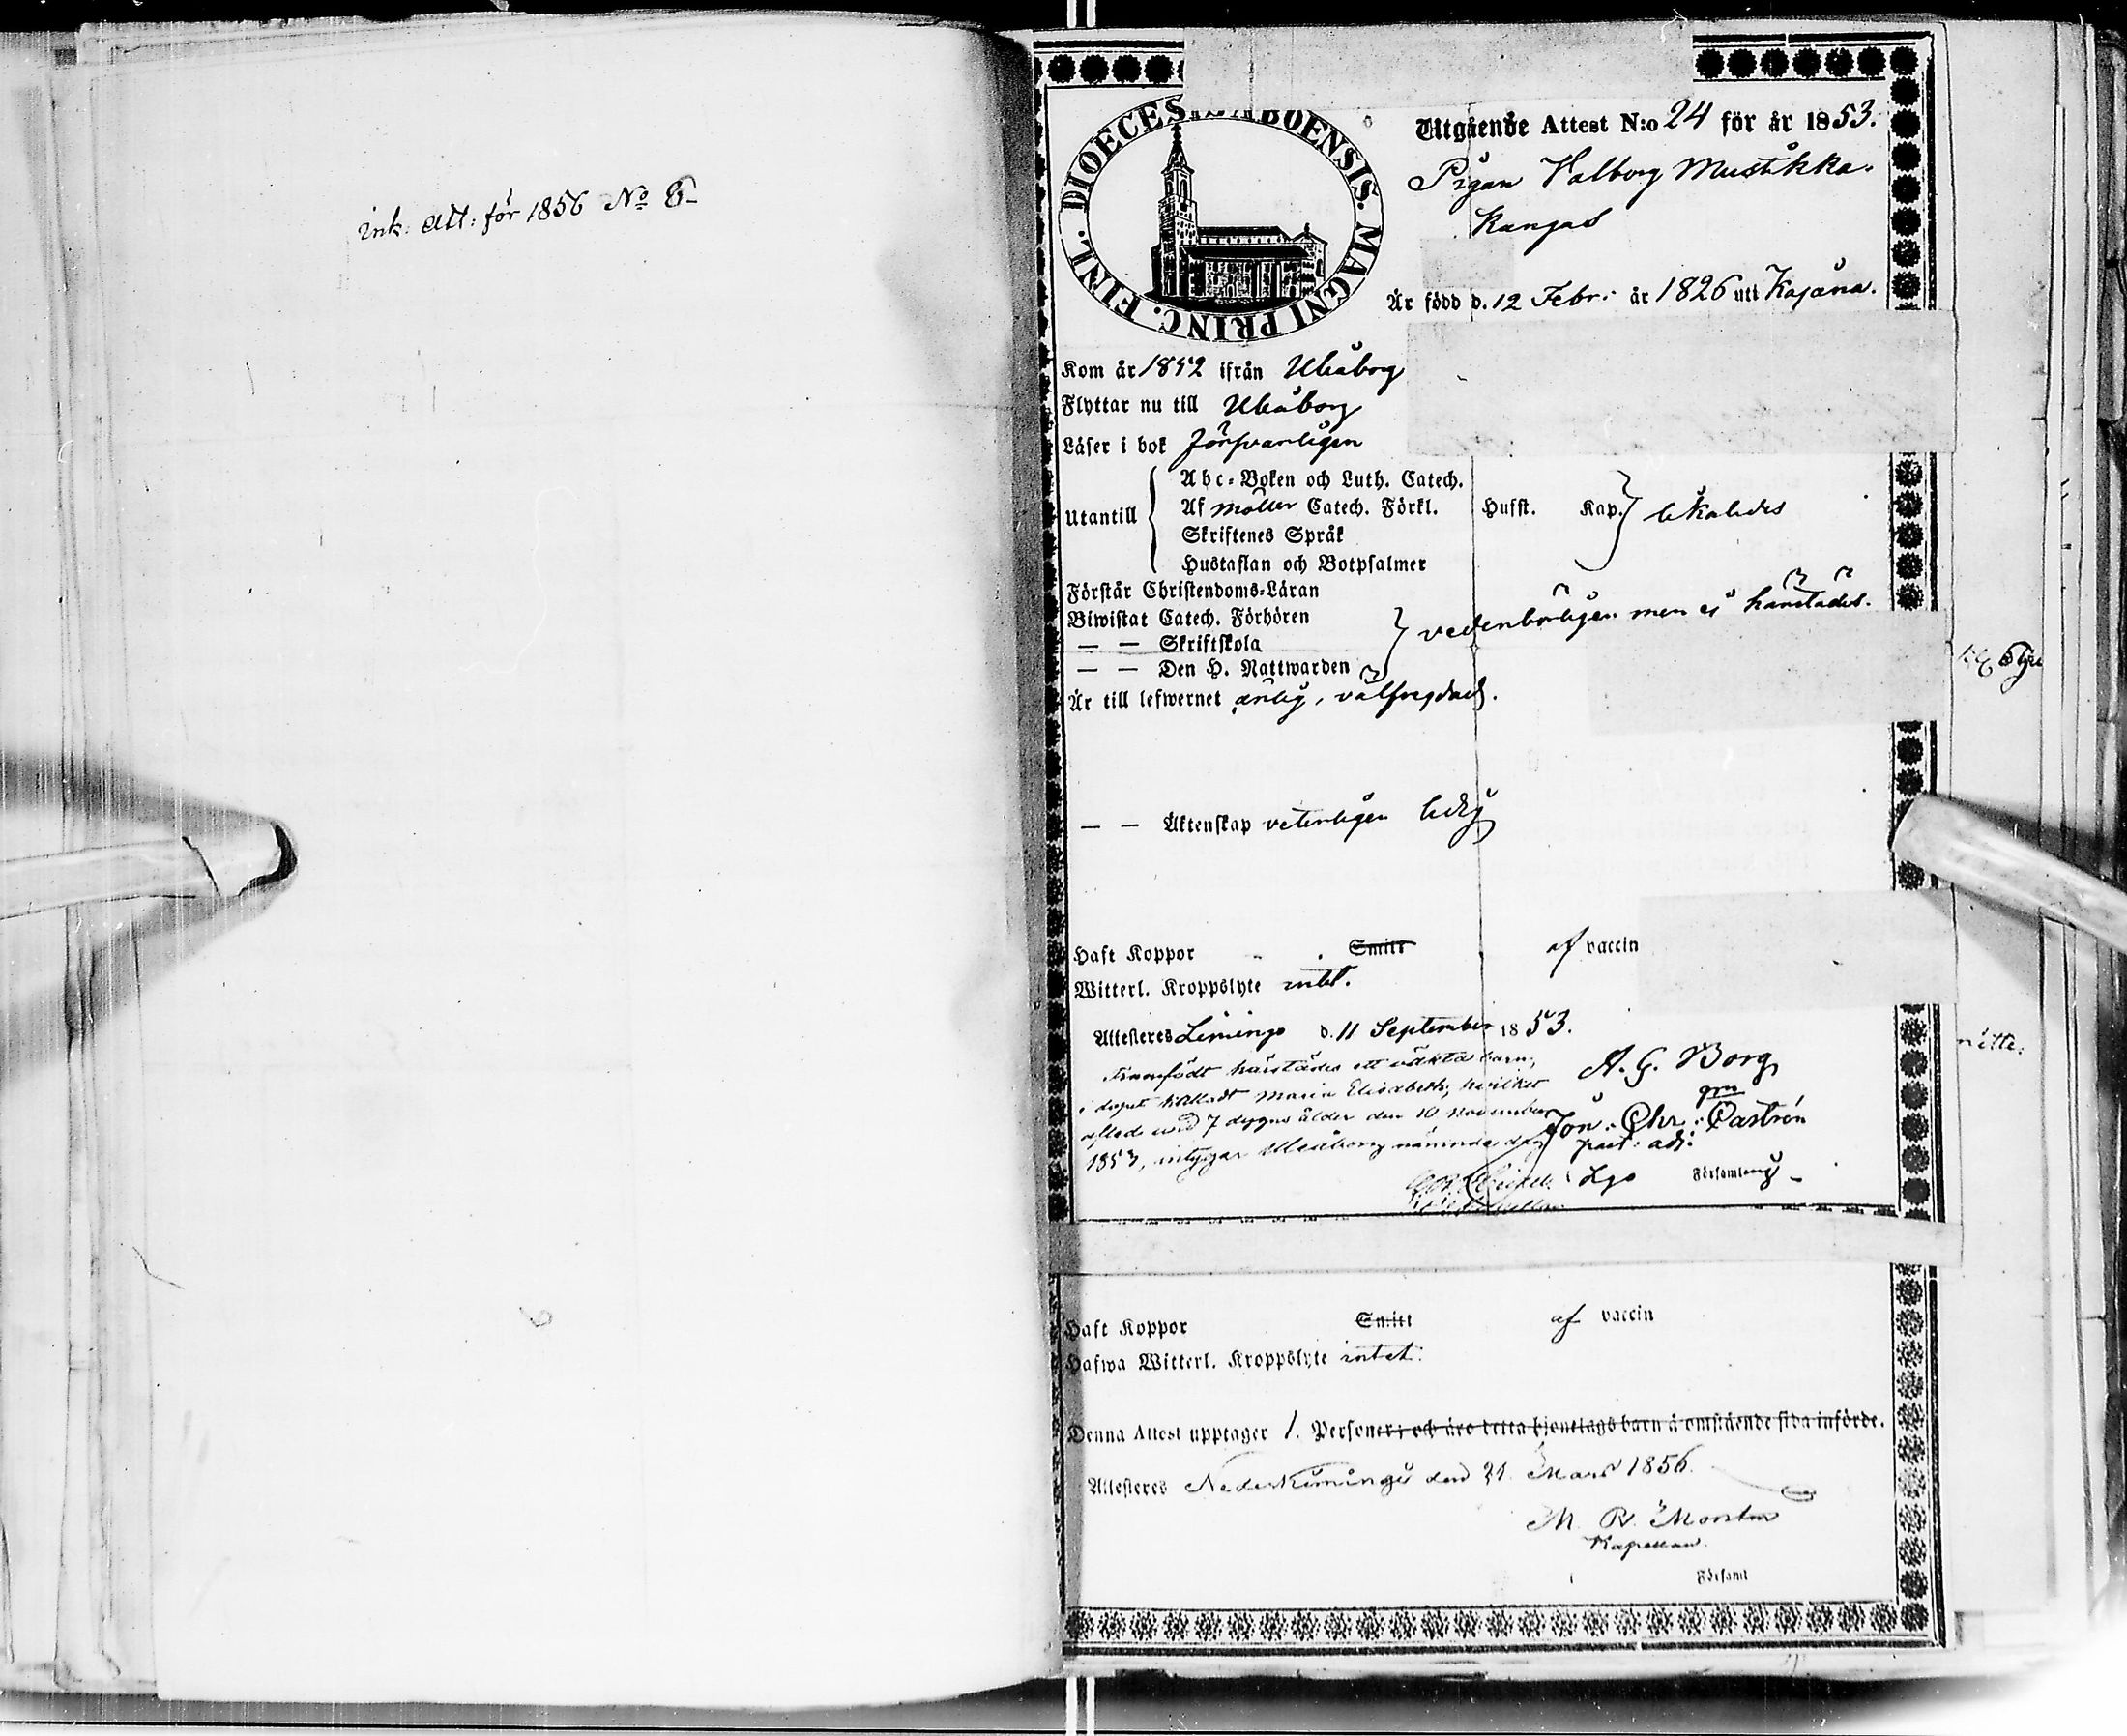 ink: Att: för 1856 No 8
DIOECESIS ABOENSIS. MAGNI PRINC. FINL.
Utgående Attest N:o 24 för år 1853.
Pigan Valborg Mustikka-
kangas
Är född d. 12 Febr: år 1826 uti Kajana.
Kom år 1852 ifrån Uleåborg
Flyttar nu till Uleåborg
Läser i bok försvarligen
Utantill
Abc-Boken och Luth. Catech.
Af Möller Catech. Förkl. Husst. Kap. likaledes
Skriftenes Språk
Hustaflan och Botpsalmer
Förstår Christendoms-Läran
Biwistat Catech. Förhören
vederbörligen men ej härstädes.
— — Skriftskola
— — Den H. Nattwarden
Är till lefwernet ärlig, välfregdad.
— — Äktenskap veterligen ledig
Haft Koppor Smitt af vaccin
Witterl. Kroppslyte intet.
Attesteras Limingo d. 11 September 1853.
Framfödt härstädes ett oäkta barn,
i dopet kalladt Maria Elisabeth, hvilket
afled vid 7 dygns ålder den 10 November
1853, intygar Uleåborg nämnde dag
A. G. Borg
gm
Jon. Chr. Castrén
past: adj:
i Lgo Församling
Haft Koppor Smitt af vaccin
Hafwa Witterl. Kroppslyte intet.
Denna Attest upptager 1. Personer; och äro detta hjonelags barn å omstående sida införde.
Attesteras Nederkiminge den 21 Mars 1856.
M. W.
Kapellan.
i Församl